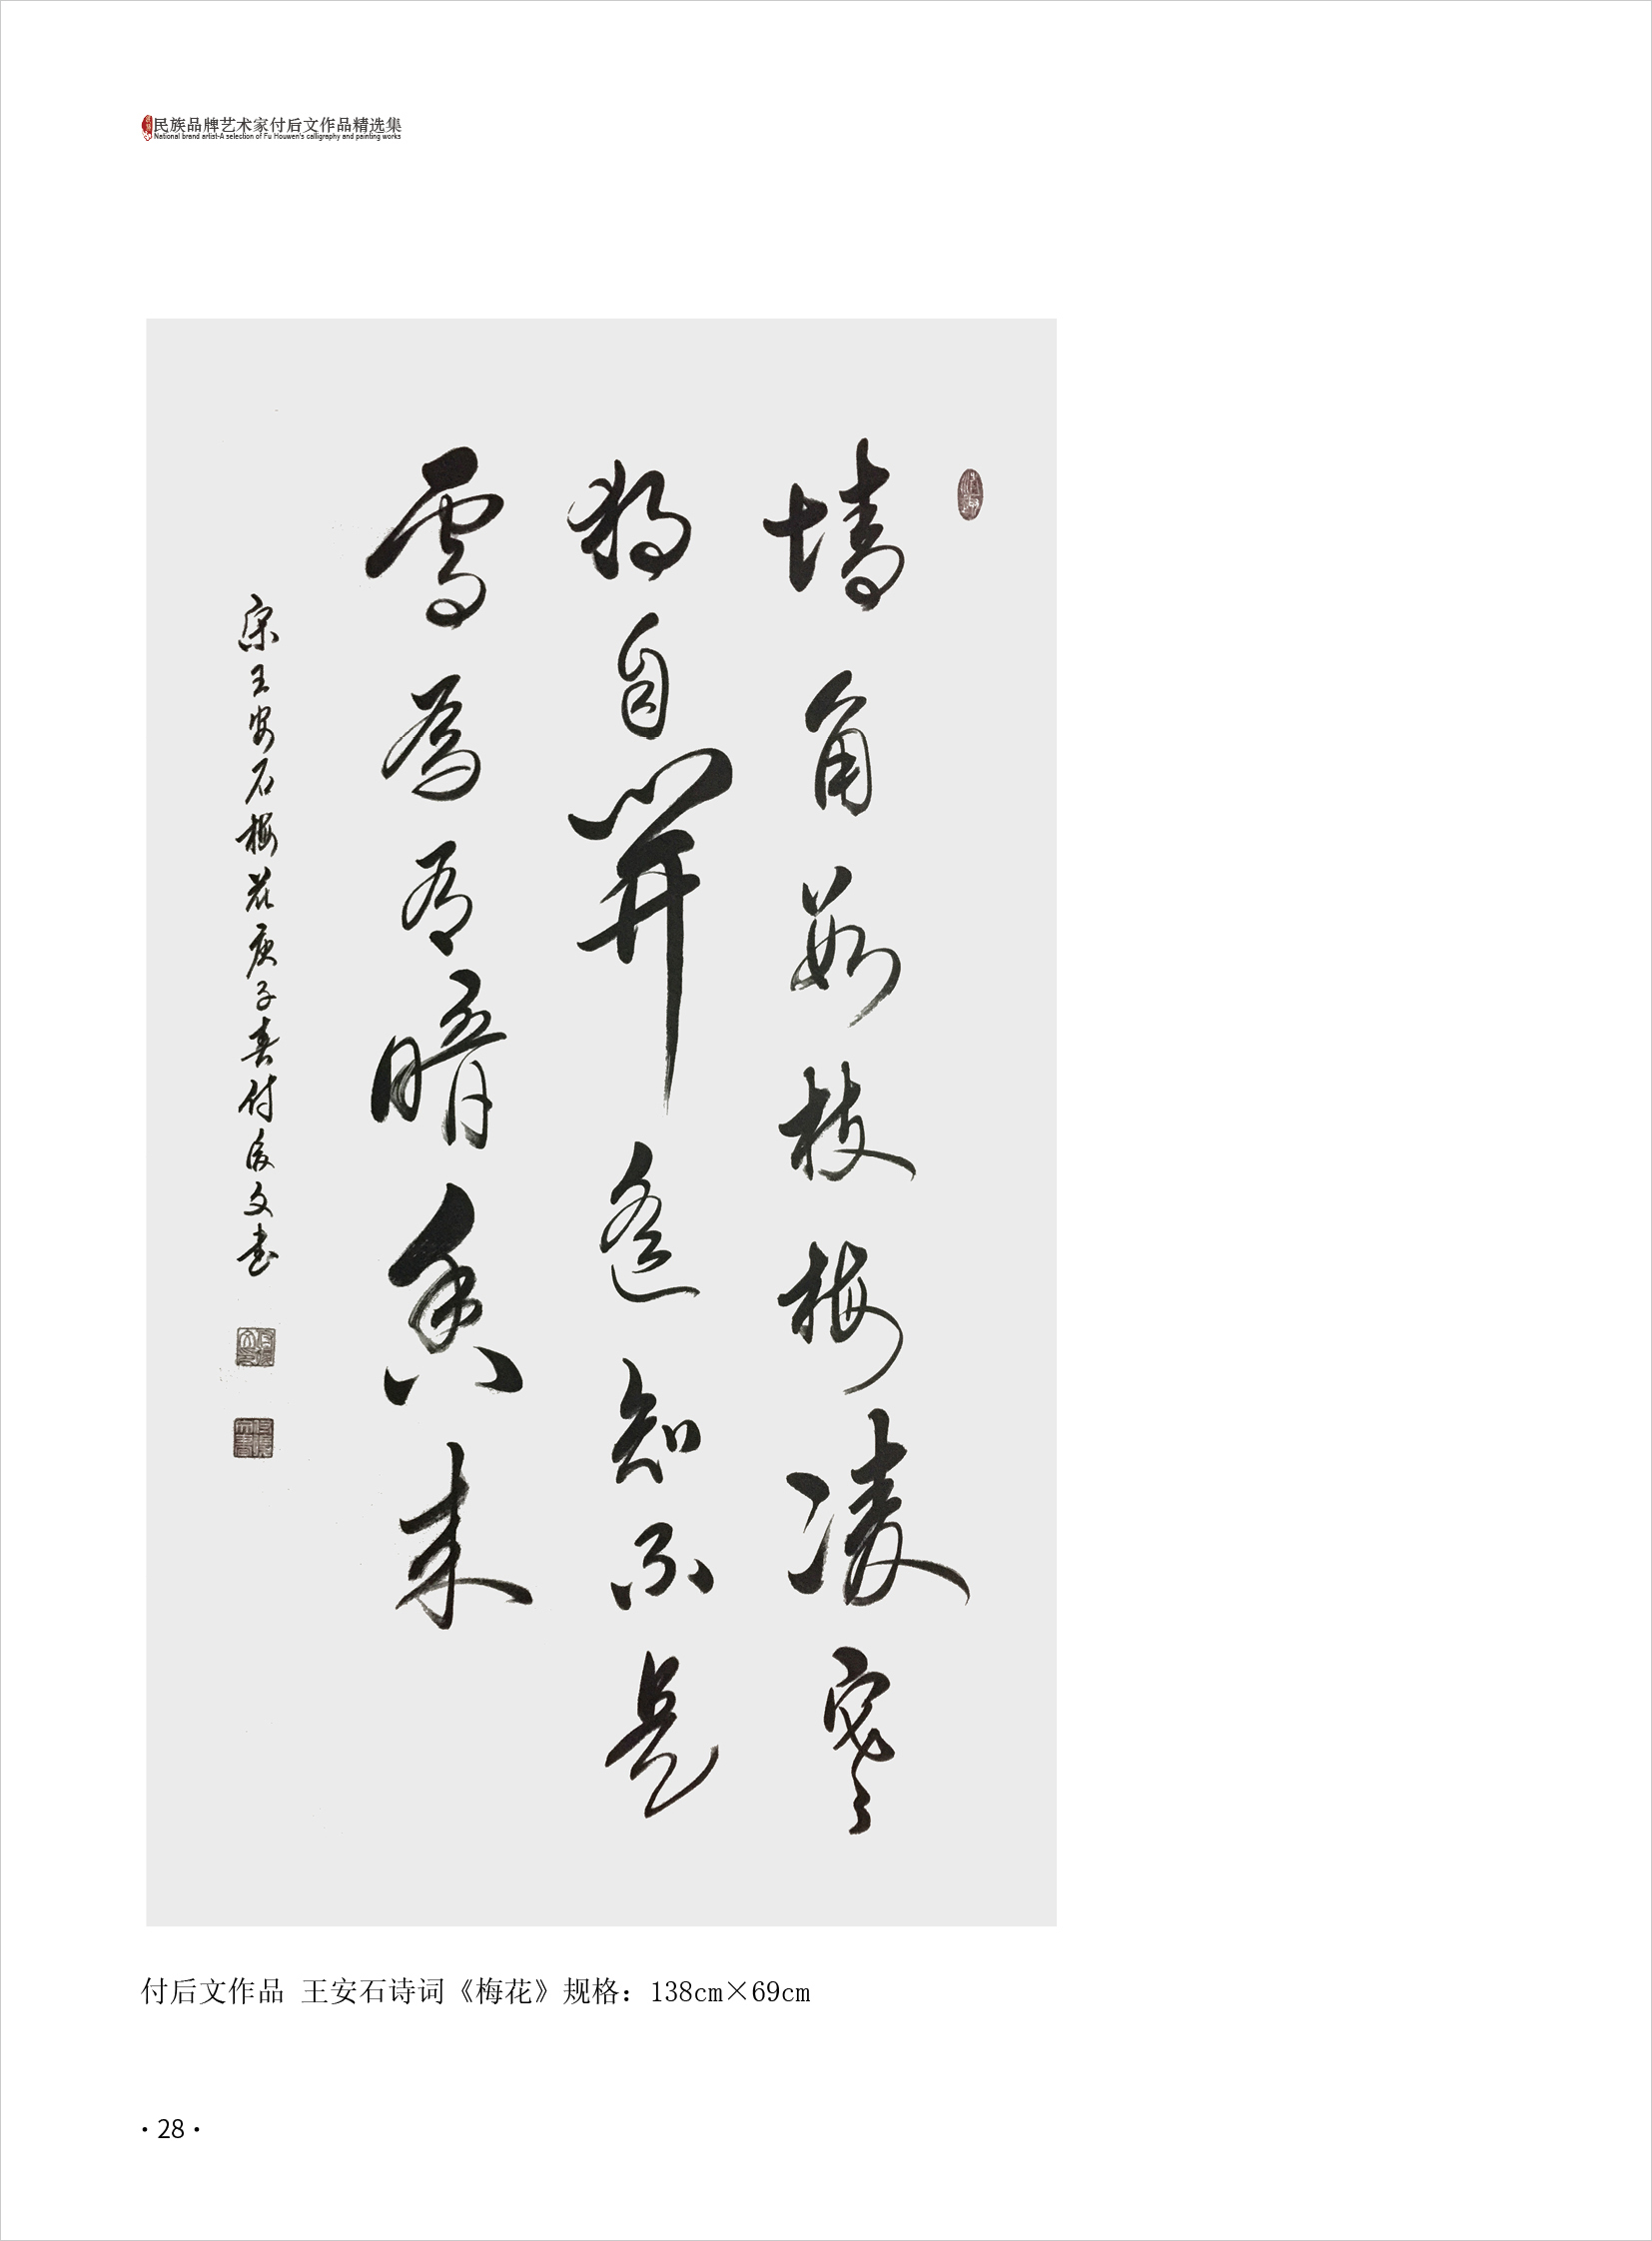 民族品牌艺术家付后文作品精选集
National brand artist-A selection of Fu Houwen's calligraphy and painting works
墙角数枝梅凌寒
独自開遥知不是
雪為有暗香来
宋王安石梅花庚子春付後文书
付后文作品 王安石诗词《梅花》规格：138cm×69cm
·28·